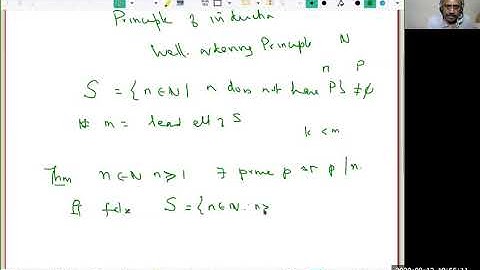 Principle of induction
Well ordering Principle N
n P
S = {n∈N | n does not have P} ≠ φ
m = least elt of S
k < m
Thm n∈N n>1 ∃ prime p st p | n.
Pf false S = {n∈N. n>